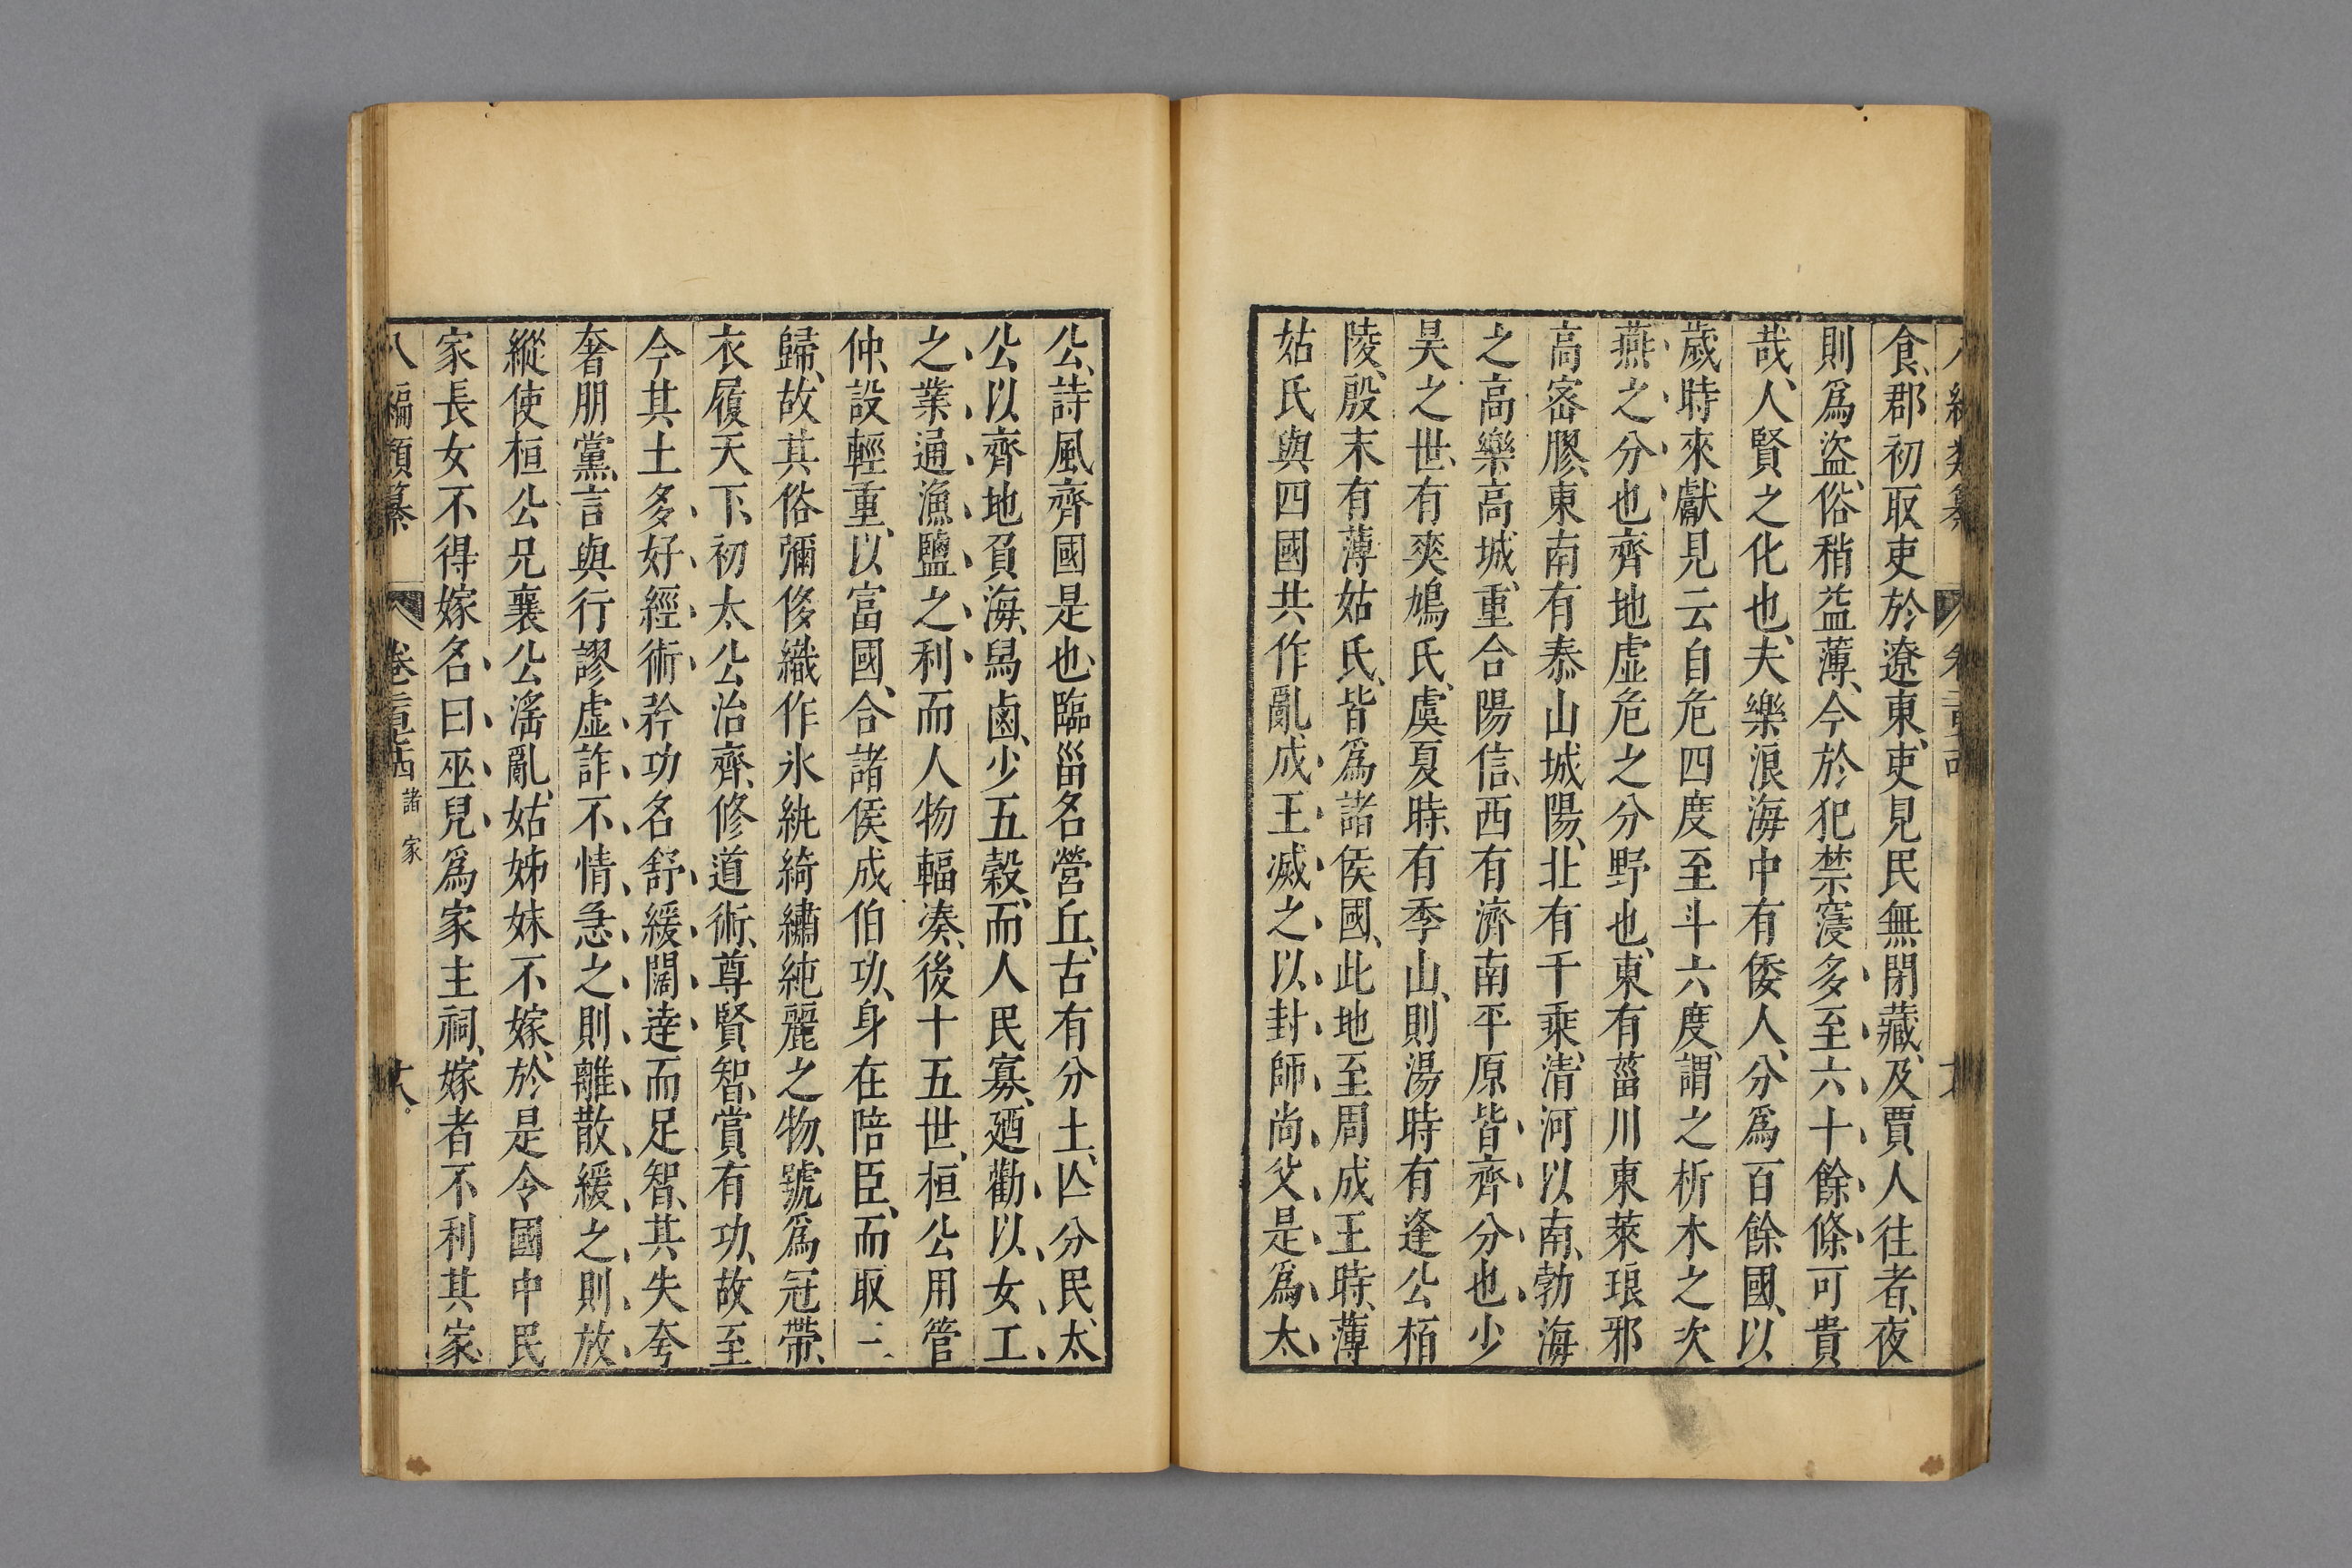 食、郡初取吏於遼東、吏見民無閉藏、及賈人往者、夜
則爲盜、俗稍益薄、今於犯禁寖多、至六十餘條、可貴
哉、人賢之化也、夫樂浪海中有倭人、分爲百餘國、以
歲時來獻見云自危四度至斗六度、謂之析木之次
燕之分也齊地虛危之分野也、東有菑川東萊琅邪
高密膠、東南有泰山城陽、北有千乘、清河以南、勃海
之高樂、高城、重合陽信、西有濟南平原、皆齊分也、少
昊之世、有爽鳩氏、虞夏時、有季山、則湯時有逢公栢
陵、殷末有薄姑氏、皆爲諸侯國、此地至周成王時、薄
姑氏與四國共作亂、成王滅之、以封師尚父、是爲太
公、詩風齊國是也、臨甾名營丘、古有分土、亾分民、太
公以齊地負海舄鹵、少五穀、而人民寡、廼勸以女工
之業、通漁鹽之利、而人物輻湊、後十五世、桓公用管
仲、設輕重、以富國、合諸侯成伯功、身在陪臣、而取三
歸、故其俗彌侈織作氷紈綺繡純麗之物、號爲冠帶、
衣履天下、初太公治齊、修道術、尊賢智、賞有功、故至
今其土多好經術、矜功名、舒緩闊達而足智、其失夸
奢朋黨、言與行謬、虛詐不情、急之則離散、緩之則放
縱使桓公兄襄公淫亂、姑姊妹不嫁、於是令國中民
家長女不得嫁、名曰巫兒、爲家主祠、嫁者不利其家、
八編類纂 卷二百五十四 諸家 十八